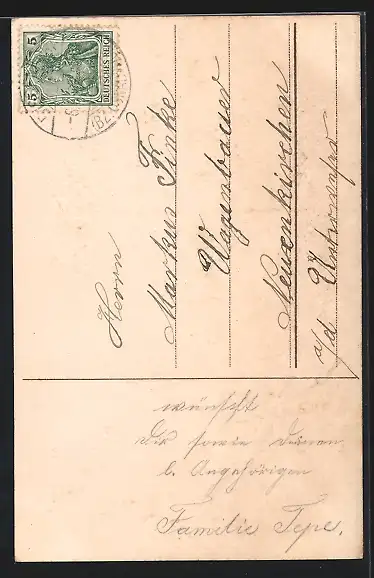 5
5
DEUTSCHES REICH
Herrn
Markus Finke
Wagenbauer
Neuenkirchen
a/d Unterweser
wünscht
Dir sowie deinen
l. Angehörigen
Familie Tepe.